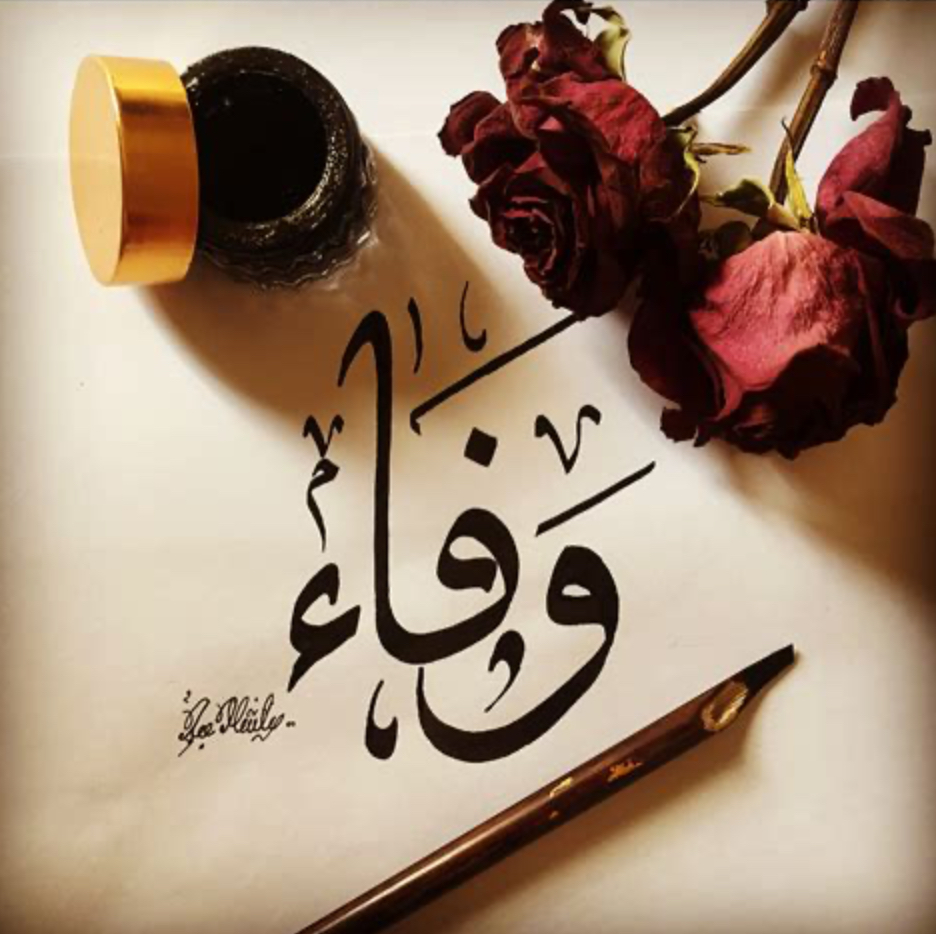 وفاء